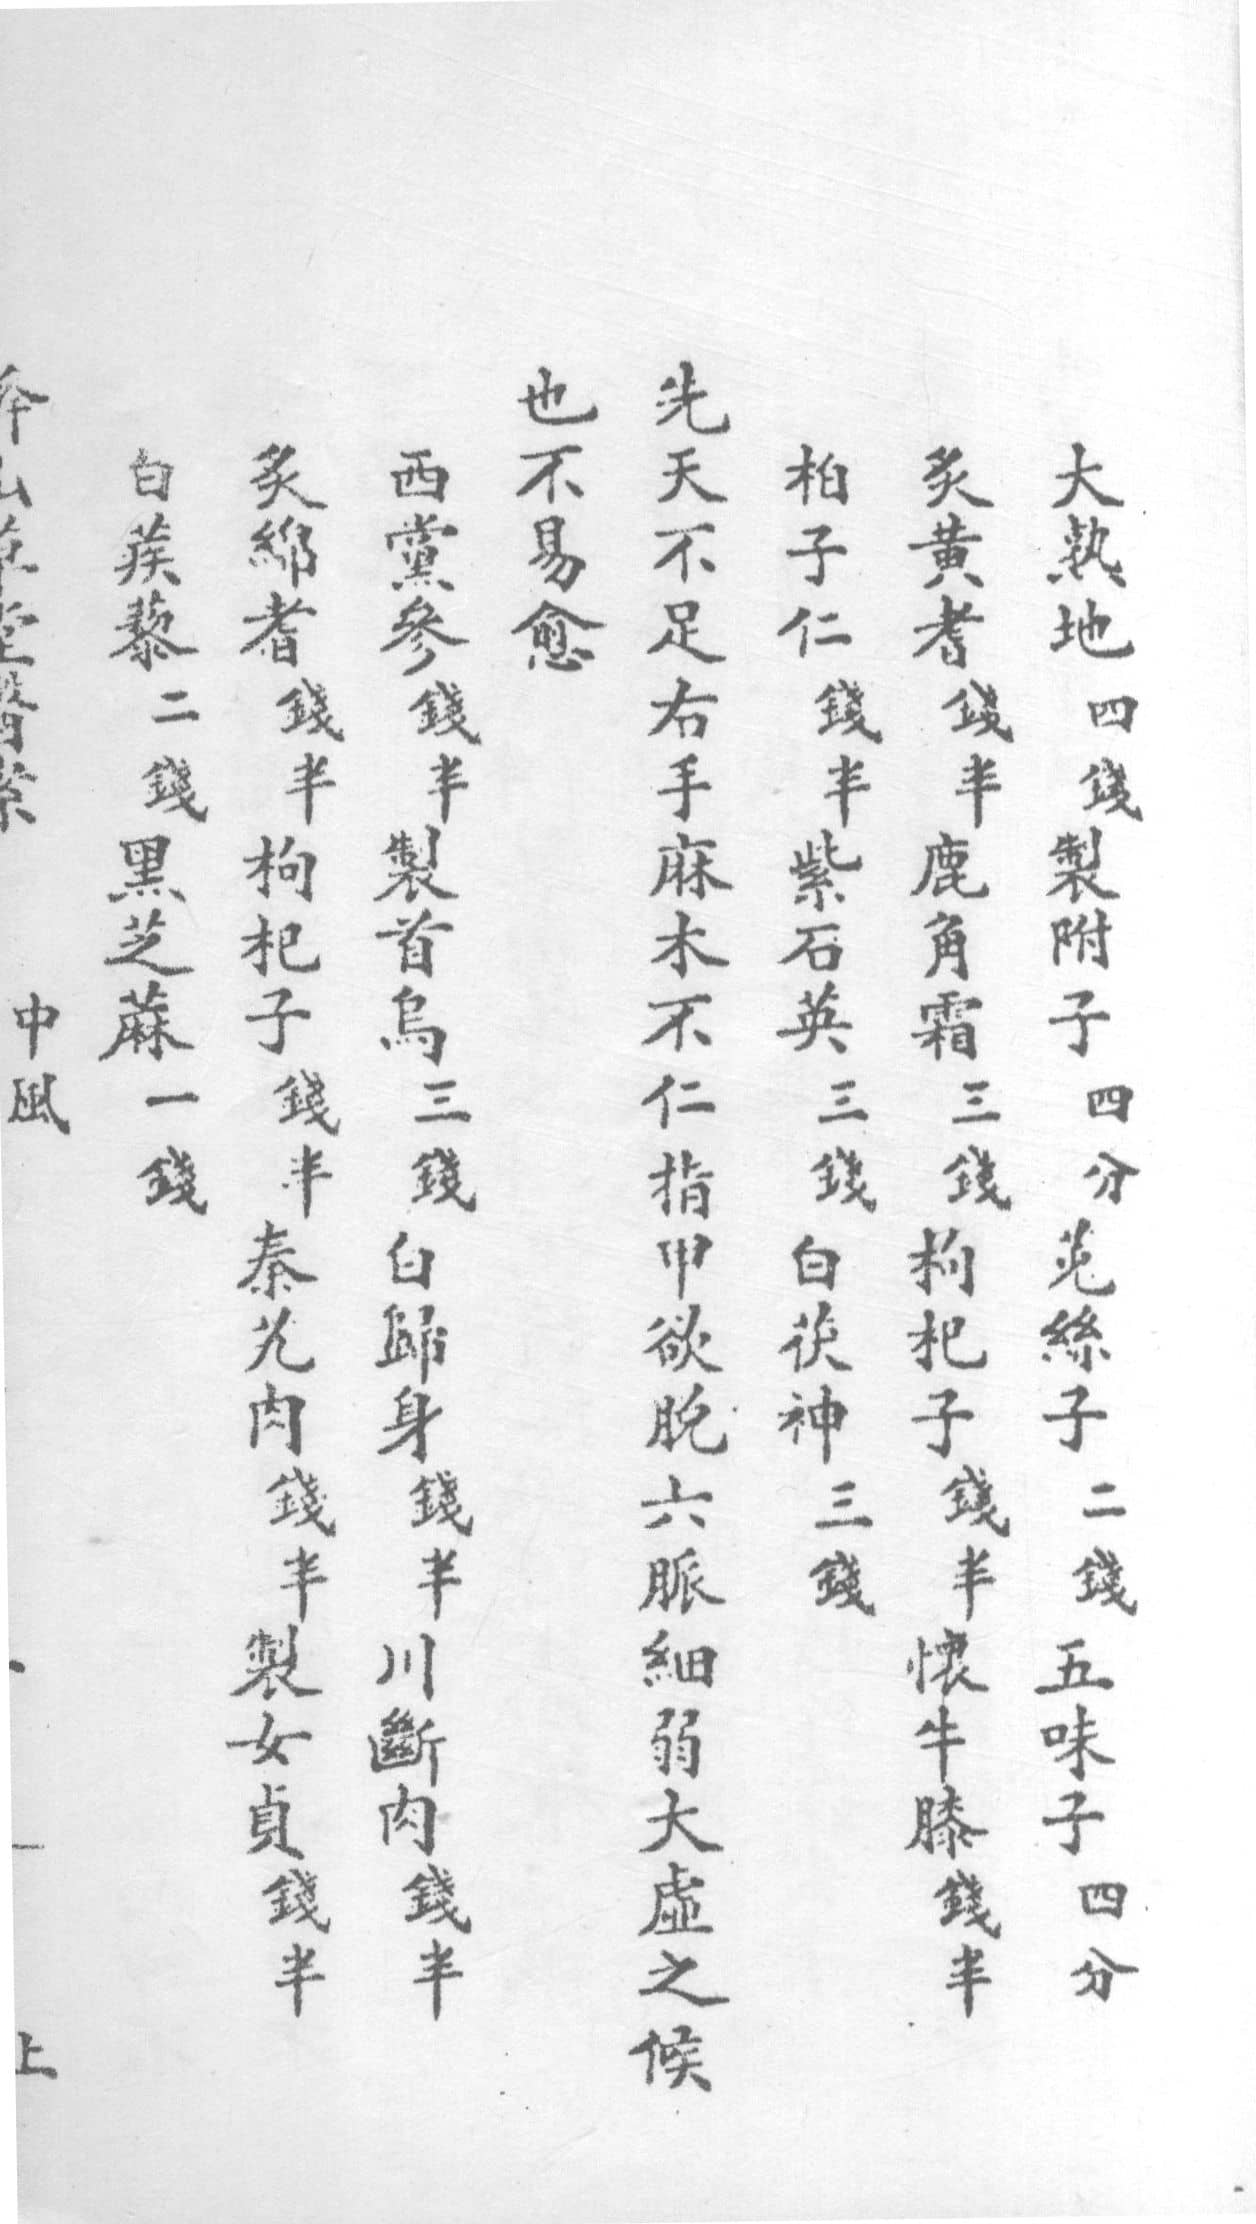 大熟地四錢製附子四分菟絲子二錢五味子四分
炙黃耆錢半鹿角霜三錢枸杞子錢半懷牛膝錢半
柏子仁錢半紫石英三錢白茯神三錢
先天不足右手麻木不仁指甲欲脫六脈細弱大虛之候
也不易愈
西黨參錢半製首烏三錢白歸身錢半川斷肉錢半
炙綿耆錢半枸杞子錢半秦艽肉錢半製女貞錢半
白蒺藜二錢黑芝蔴一錢
山草堂醫案 中風 上